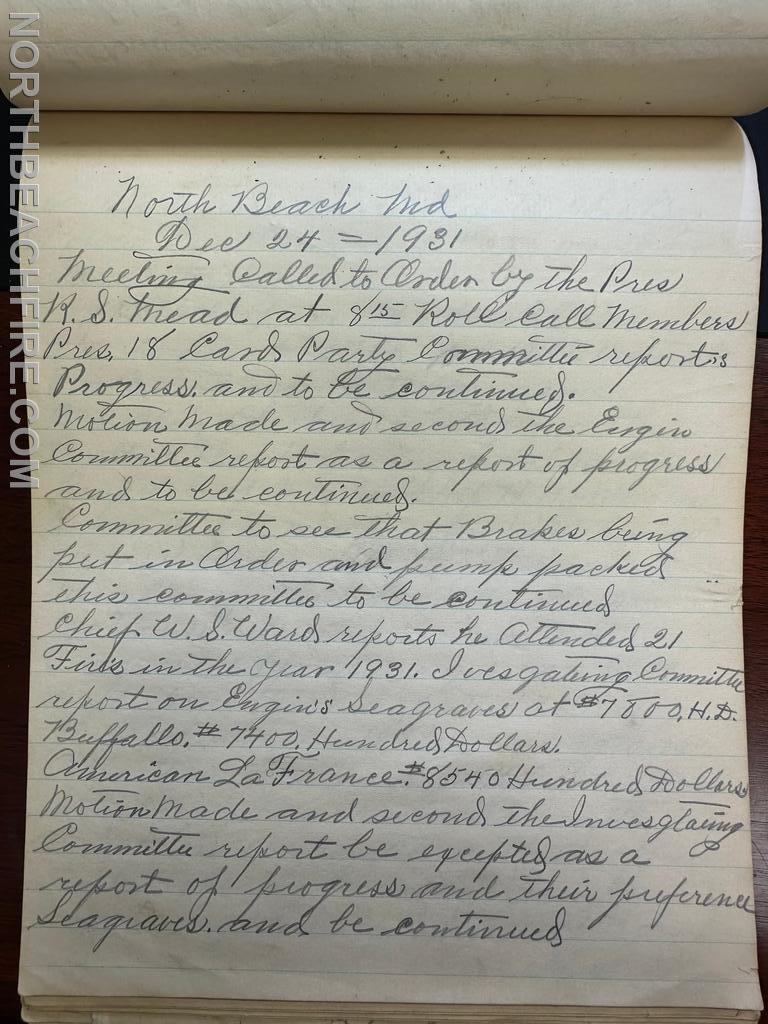 NORTHBEACHFIRE.COM
North Beach Md
Dec 24 = 1931
Meeting Called to Order by the Pres
R. S. Mead at 8 15 Roll Call Members
Pres, 18 Card Party Committee reports
Progress. and to be continued.
Motion Made and second the Engin
Committee report as a report of progress
and to be continued.
Committee to see that Brakes being
put in Order and pump packed
this committee to be continued
Chief W. S. Ward reports he Attended 21
Firs in the year 1931. Ivesgateing Committe
report on Engin's Seagraves at #7800, H.D.
Buffallo. # 7400, Hundred Dollars.
American La France. # 8540 Hundred Dollars
Motion Made and second the Invesgtaing
Committe report be excepted as a
report of progress and their preference
Seagraves. and be continued